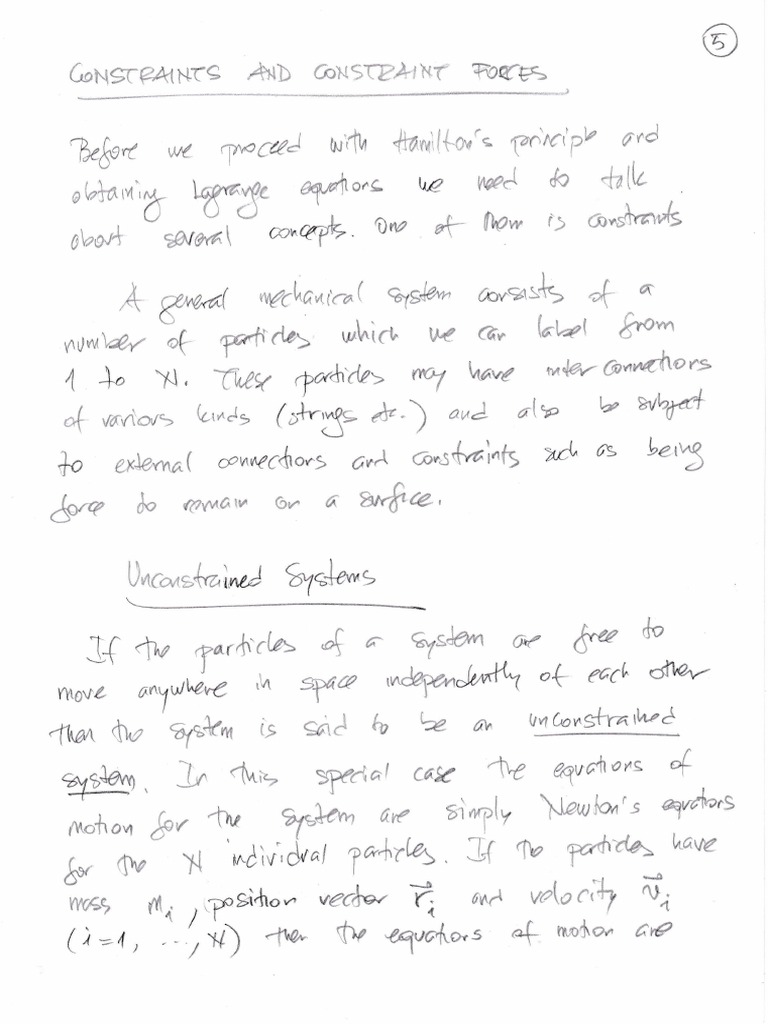 5
CONSTRAINTS AND CONSTRAINT FORCES
Before we proceed with Hamilton's principle and
obtaining Lagrange equations we need to talk
about several concepts. One of them is constraints
A general mechanical system consists of a
number of particles which we can label from
1 to N. These particles may have inter connections
of various kinds (strings etc.) and also be subject
to external connections and constraints such as being
force to remain on a surface.
Unconstrained Systems
If the particles of a system are free to
move anywhere in space independently of each other
then the system is said to be an unconstrained
system. In this special case the equations of
motion for the system are simply Newton's equations
for the N individual particles. If the particles have
mass mᵢ, position vector r⃗ᵢ and velocity v⃗ᵢ
(i=1, ..., N) then the equations of motion are